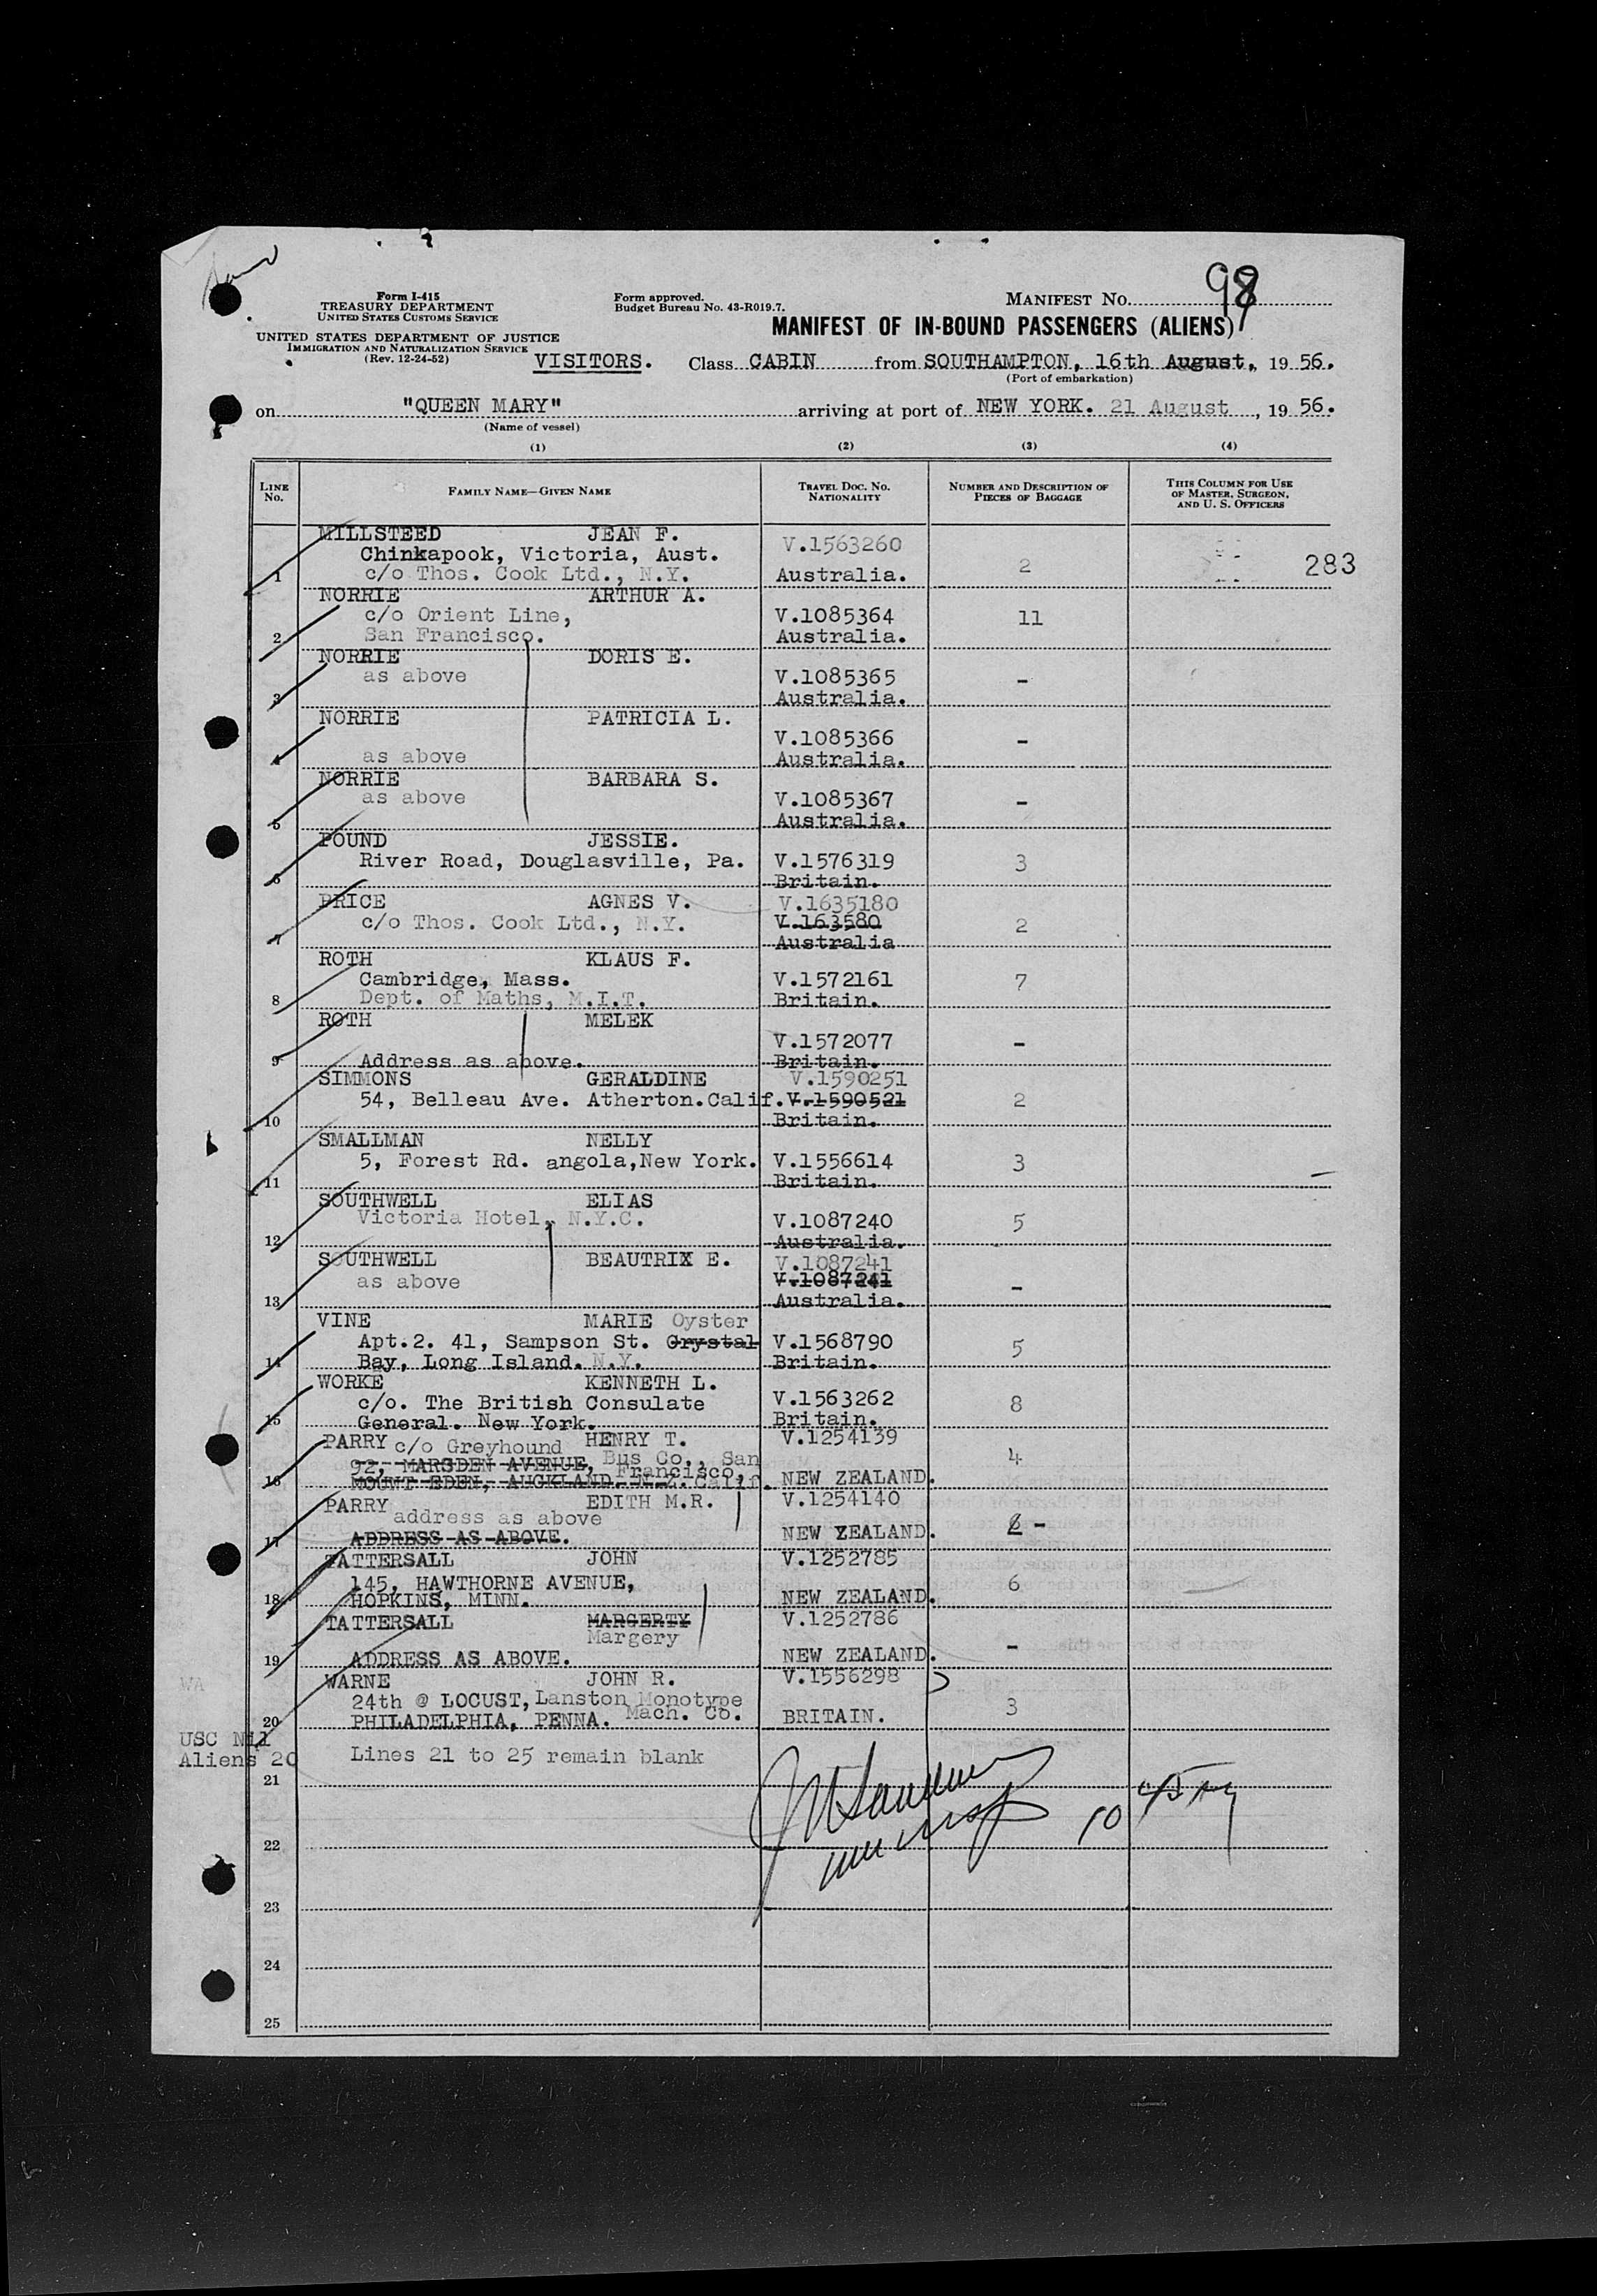 98
Form I-415
TREASURY DEPARTMENT
UNITED STATES CUSTOMS SERVICE
Form approved.
Budget Bureau No. 43-R019.7.
MANIFEST NO.
MANIFEST OF IN-BOUND PASSENGERS (ALIENS)
UNITED STATES DEPARTMENT OF JUSTICE
IMMIGRATION AND NATURALIZATION SERVICE
(Rev. 12-24-52)
VISITORS. Class CABIN from SOUTHAMPTON, 16th August, 19 56.
(Port of embarkation)
on "QUEEN MARY" arriving at port of NEW YORK. 21 August, 19 56.
(Name of vessel)
(1) (2) (3) (4)
LINE No. FAMILY NAME—GIVEN NAME TRAVEL DOC. NO. NATIONALITY NUMBER AND DESCRIPTION OF PIECES OF BAGGAGE THIS COLUMN FOR USE OF MASTER, SURGEON, AND U. S. OFFICERS
MILLSTEED JEAN F. V.1563260
Chinkapook, Victoria, Aust. 2 283
1 c/o Thos. Cook Ltd., N.Y. Australia.
NORRIE ARTHUR A.
c/o Orient Line, V.1085364 11
2 San Francisco. Australia.
NORRIE DORIS E.
as above V.1085365 -
3 Australia.
NORRIE PATRICIA L.
V.1085366 -
4 as above Australia.
NORRIE BARBARA S.
as above V.1085367 -
5 Australia.
POUND JESSIE.
River Road, Douglasville, Pa. V.1576319 3
6 Britain.
PRICE AGNES V. V.1635180
c/o Thos. Cook Ltd., N.Y. V.163580 2
7 Australia
ROTH KLAUS F.
Cambridge, Mass. V.1572161 7
8 Dept. of Maths, M.I.T. Britain.
ROTH MELEK
V.1572077 -
9 Address as above. Britain.
SIMMONS GERALDINE V.1590251
54, Belleau Ave. Atherton.Calif. V.1590521 2
10 Britain.
SMALLMAN NELLY
5, Forest Rd. angola,New York. V.1556614 3
11 Britain.
SOUTHWELL ELIAS
Victoria Hotel, N.Y.C. V.1087240 5
12 Australia.
SOUTHWELL BEAUTRIX E. V.1087241
as above V.1087241 -
13 Australia.
VINE MARIE Oyster
Apt.2. 41, Sampson St. Crystal V.1568790 5
14 Bay, Long Island. N.Y. Britain.
WORKE KENNETH L.
c/o. The British Consulate V.1563262 8
15 General. New York. Britain.
PARRY c/o Greyhound HENRY T. V.1254139
92, MARSDEN AVENUE, Bus Co., San Francisco, 4
16 MOUNT EDEN, AUCKLAND. N.Z. Calif. NEW ZEALAND.
PARRY EDITH M.R. V.1254140
address as above
17 ADDRESS AS ABOVE. NEW ZEALAND. 6 -
TATTERSALL JOHN V.1252785
145, HAWTHORNE AVENUE, 6
18 HOPKINS, MINN. NEW ZEALAND.
TATTERSALL MARGERTY V.1252786
Margery -
19 ADDRESS AS ABOVE. NEW ZEALAND.
WA
WARNE JOHN R. V.1556298
24th @ LOCUST, Lanston Monotype 3
20 PHILADELPHIA, PENNA. Mach. Co. BRITAIN.
USC Nil
Aliens 20 Lines 21 to 25 remain blank
21
10 45
22
23
24
25